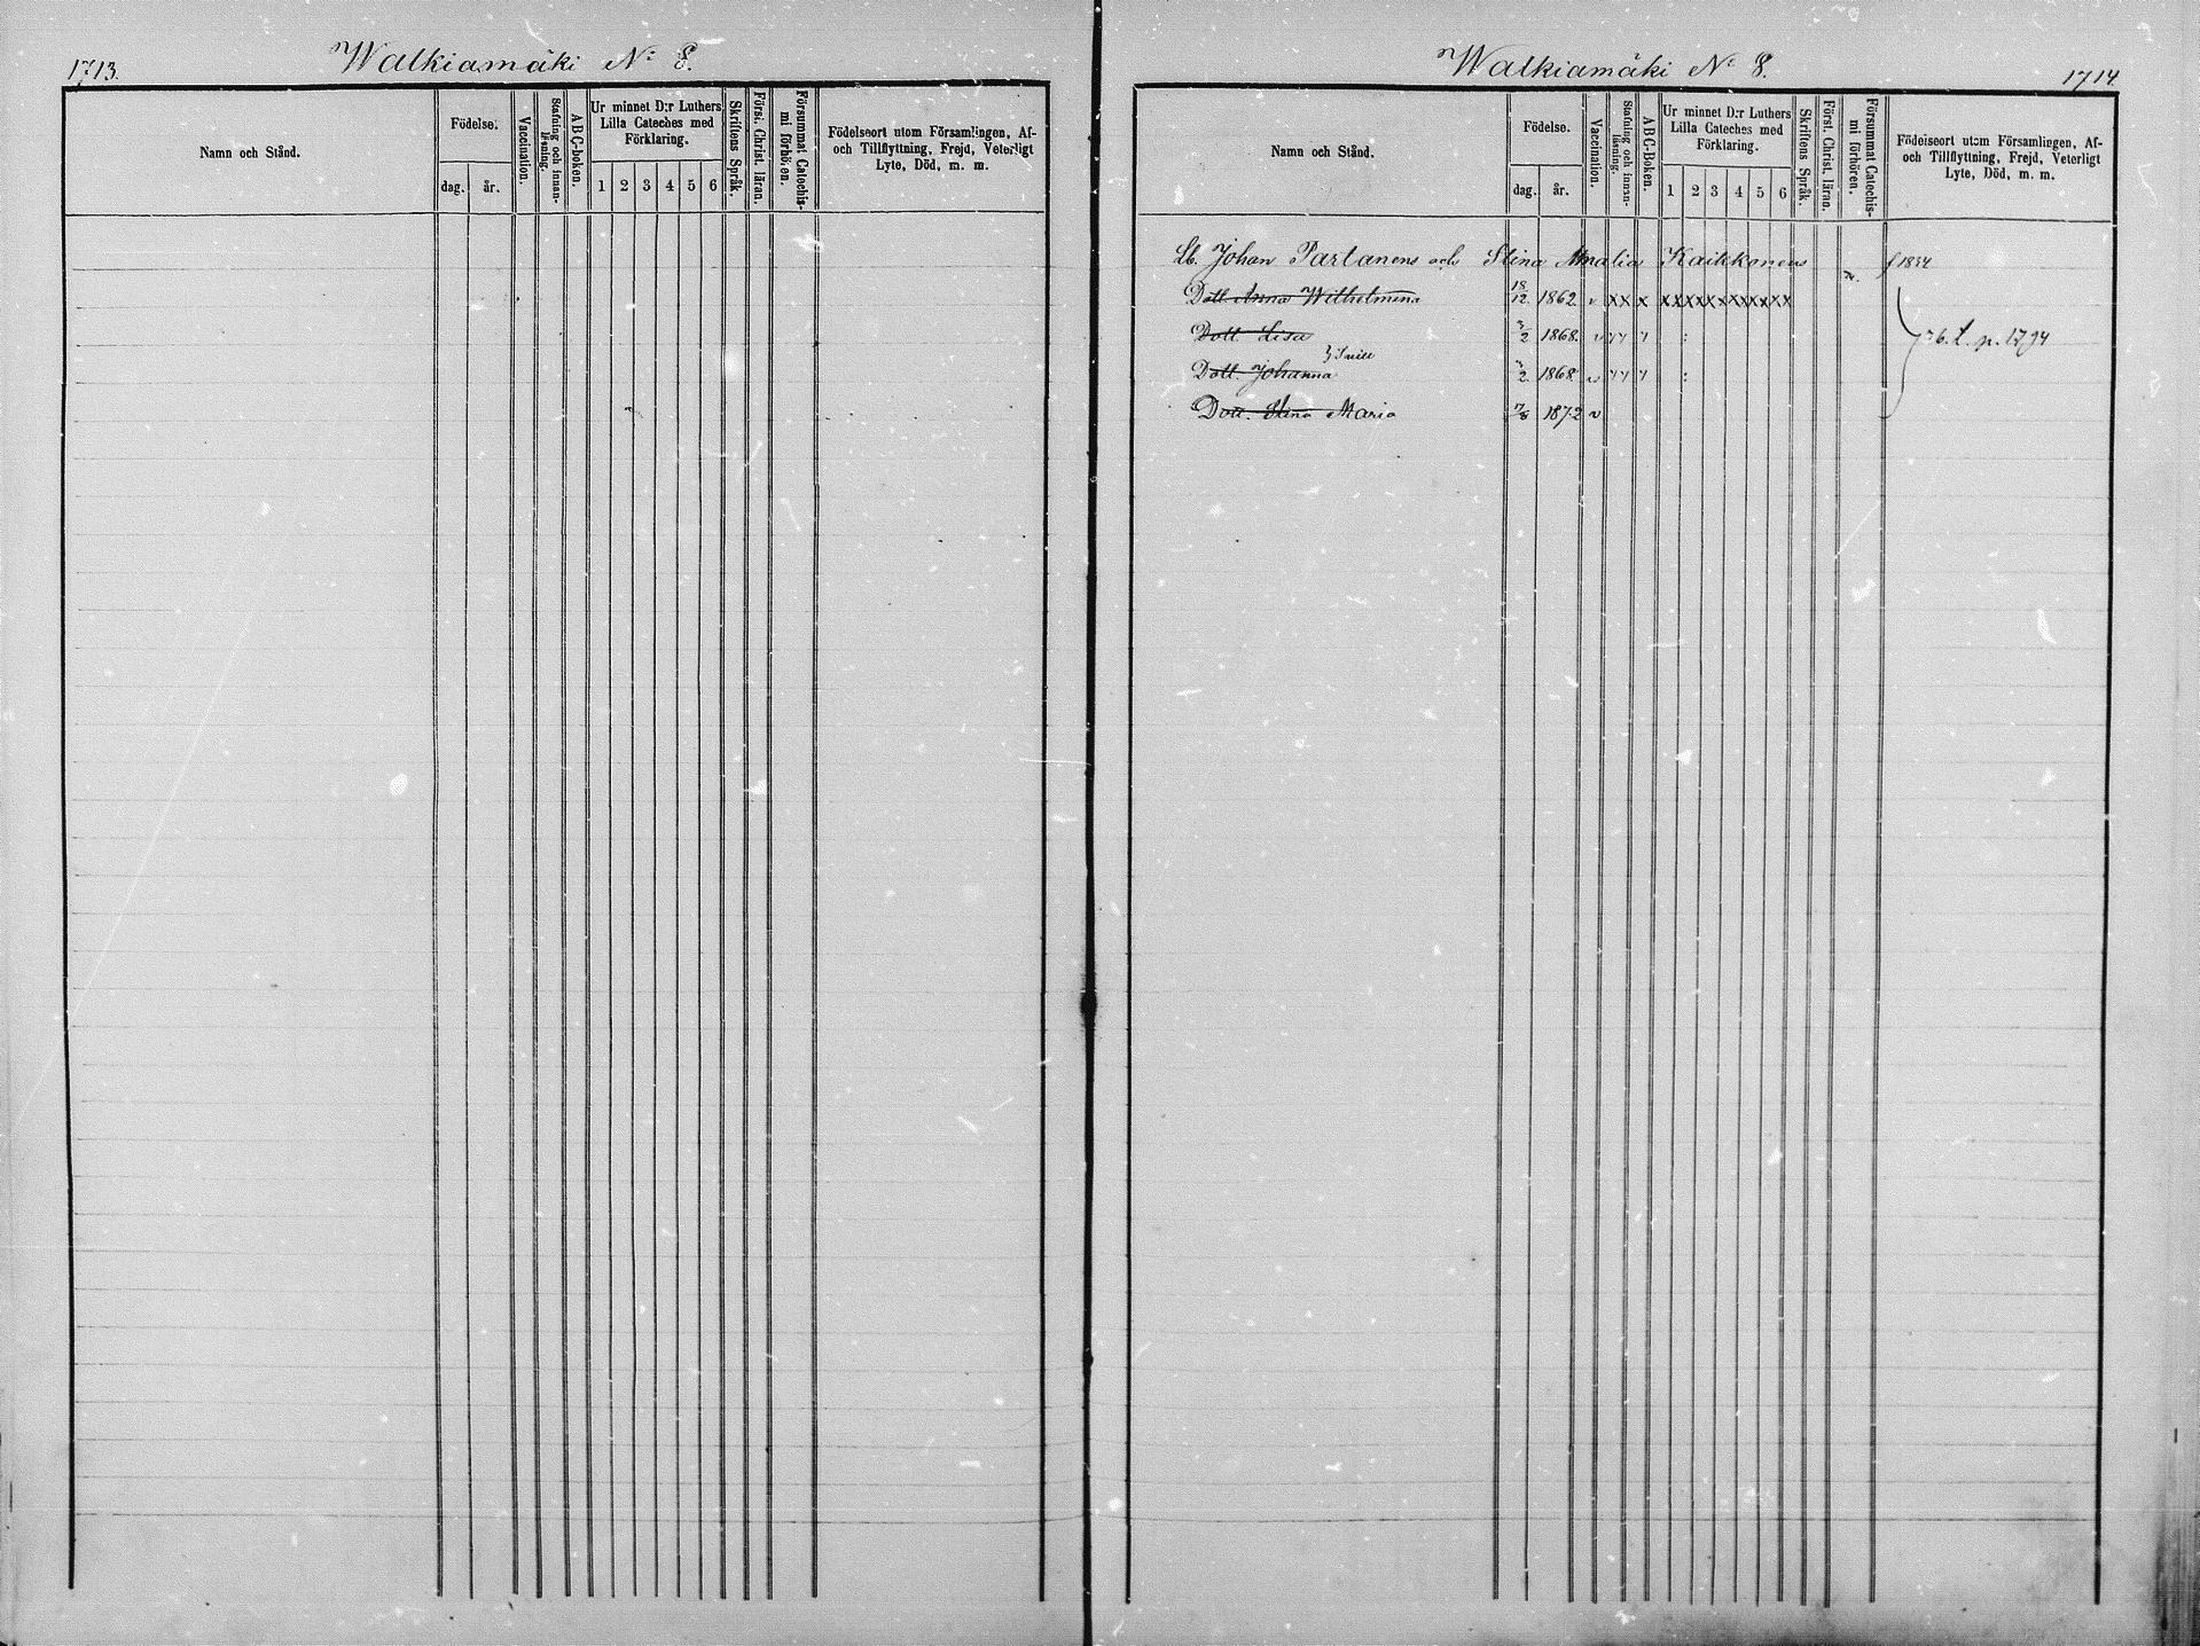 1713.
Walkiamäki № 8.
Namn och Stånd.
Födelse.
dag. år.
Vaccination.
Stafning och innan-
läsning.
ABC-boken.
Ur minnet D:r Luthers
Lilla Cateches med
Förklaring.
1 2 3 4 5 6
Skriftens Språk.
Först. Christ. läran.
Försummat Catechis-
mi förhören.
Födelseort utom Församlingen, Af-
och Tillflyttning, Frejd, Veterligt
Lyte, Död, m. m.
Walkiamäki № 8.
1714.
Namn och Stånd.
Födelse.
dag. år.
Vaccination.
Stafning och innan-
läsning.
ABC-Boken.
Ur minnet D:r Luthers
Lilla Cateches med
Förklaring.
1 2 3 4 5 6
Skriftens Språk.
Först. Christ. läran.
Försummat Catechis-
mi förhören.
Födelseort utom Församlingen, Af-
och Tillflyttning, Frejd, Veterligt
Lyte, Död, m. m.
Lb. Johan Partanens och Stina Amalia Kaikkonens
Dott. Anna Wilhelmina 18/12 1862 v x x x x x x x x x x x x x x
Dott. Lisa 3/2 1868. v
76. t. p. 1794
Dott. Johanna 3/2 1868 v
Dott. Stina Maria 7/8 1872 v